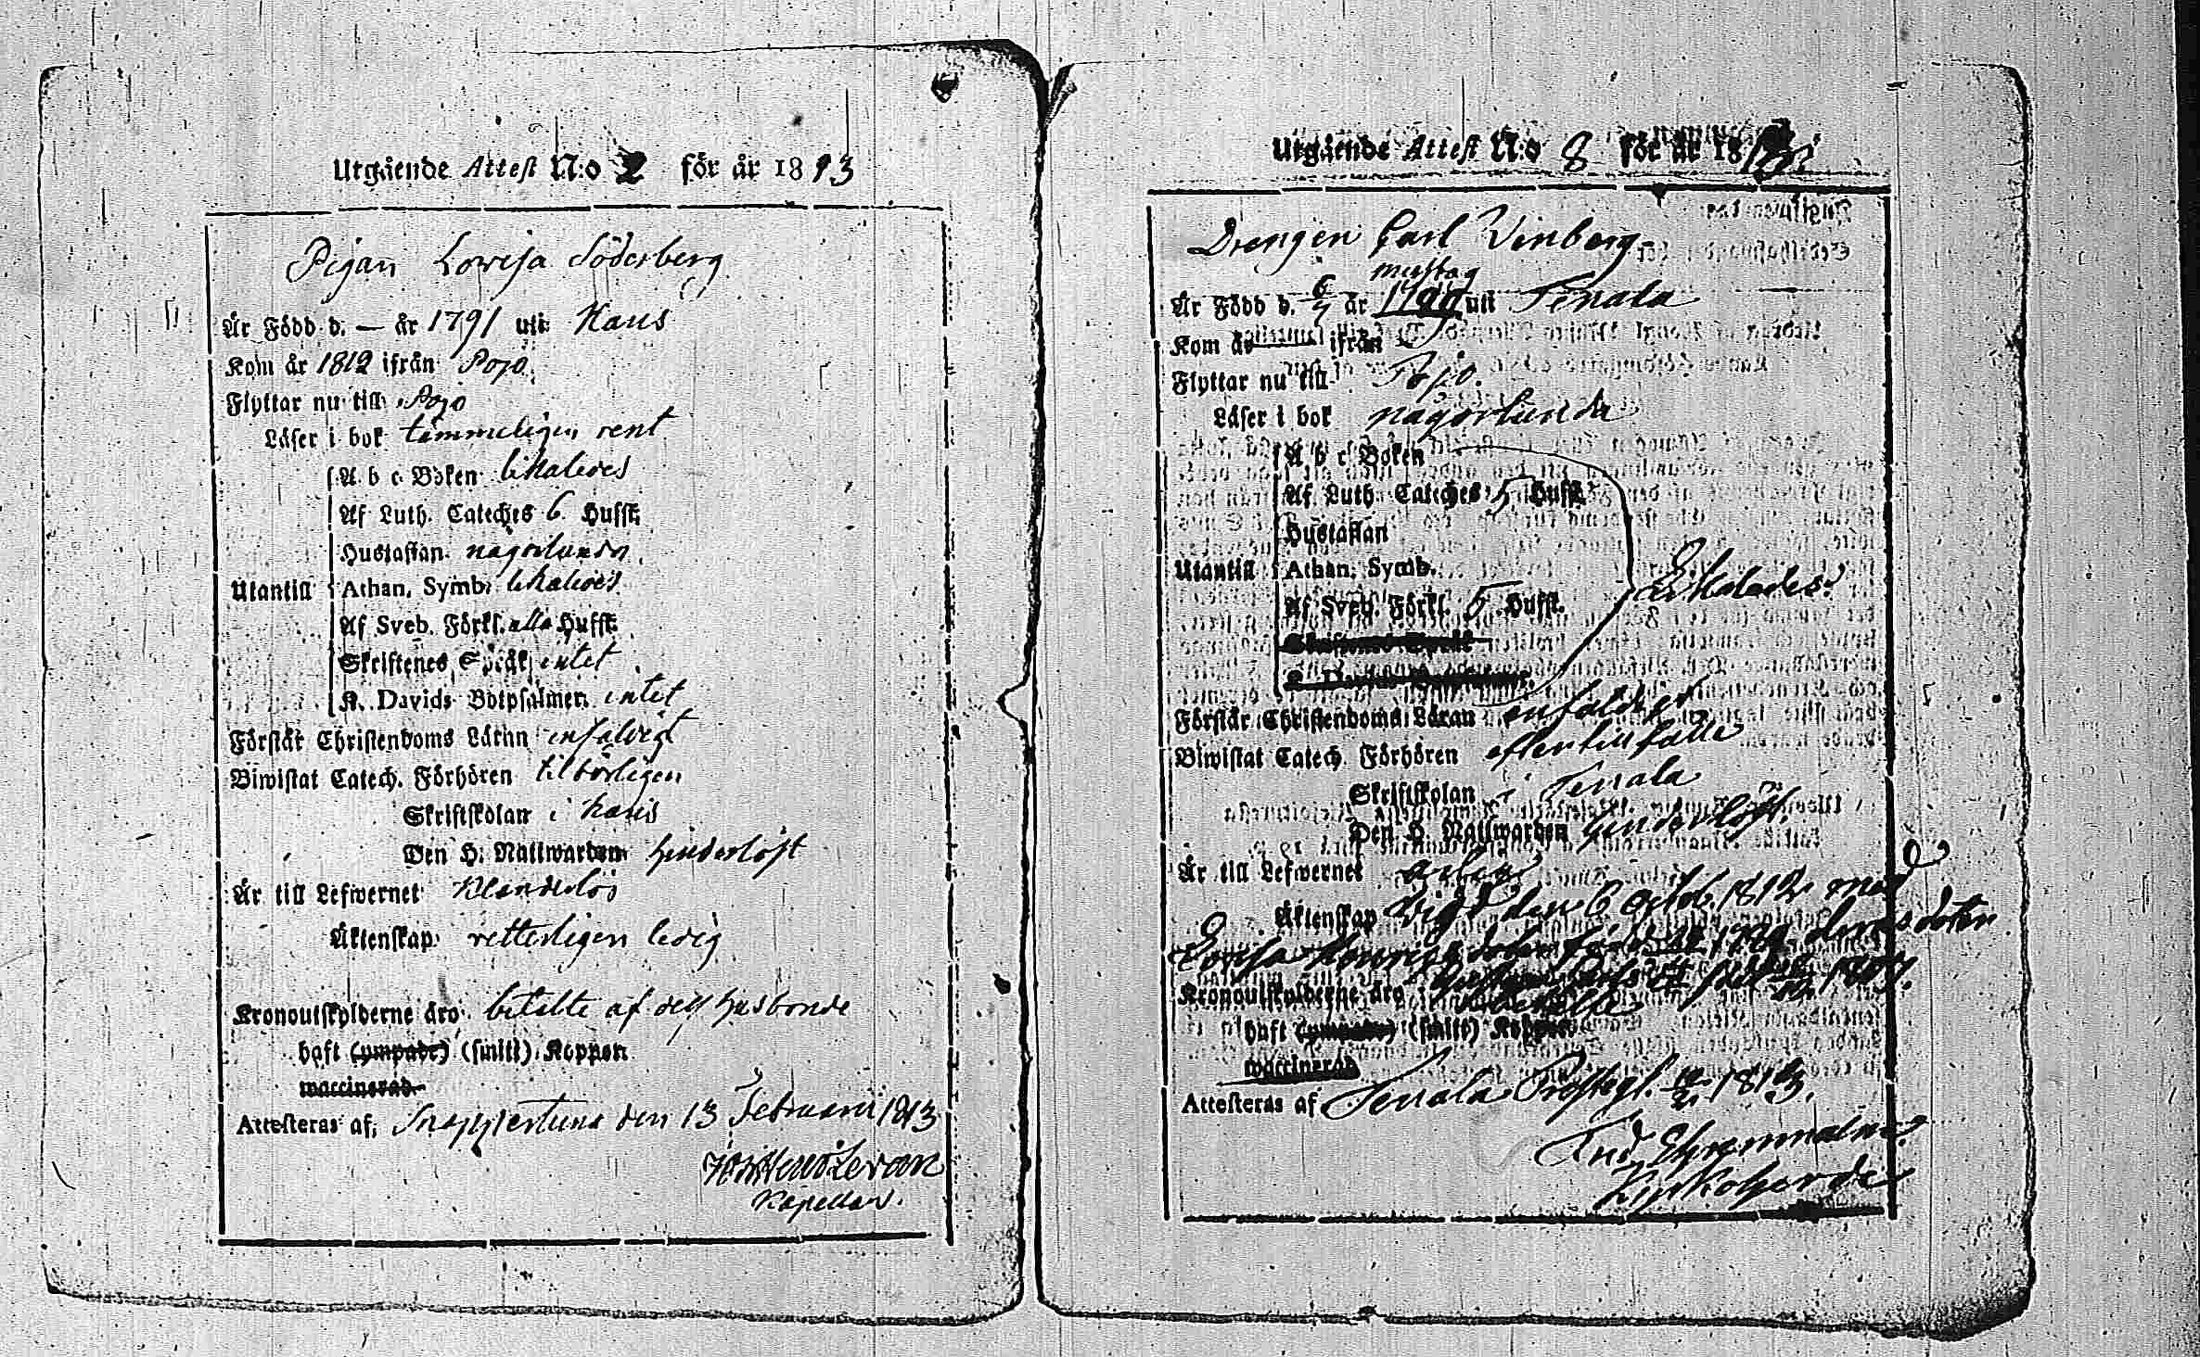 Utgående Attest N:o 2 för år 1813
Pigan Lowisa Söderberg
Är Född d. — år 1791 uti Karis
Kom år 1812 ifrån Pojo
Flyttar nu till Pojo
Läser i bok tämmeligen rent
A b c Boken likaledes
Af Luth. Cateches 6 Hufst.
Hustaflan någorlunda
Utantill Athan. Symb. likaledes
Af Sveb. Förkl. alla Hufst.
Skriftenes Språk intet
K. Davids Botpsalmer intet
Förstår Christendoms Läran enfaldigt
Biwistat Catech. Förhören tilbörligen
Skriftskolan i Karis
Den H. Nattwarden hinderlöst
Är till Lefwernet klanderlös
Äktenskap rätterligen ledig
Kronoutskylderne äro betalte af dess husbonde
haft (ympade) (smitt) Koppor
waccinerad
Attesteras af, Snappertuna den 13 Februarii 1813
Kapellan.
Utgående Attest N:o 8 för år 18
Drengen Carl Winberg
Är Född d. 6/7 år uti Tenala
Kom år ifrån
Flyttar nu till Pojo.
Läser i bok någorlunda
A b c Boken
Af Luth. Cateches 5 Hufst.
Hustaflan
Utantill Athan. Symb. Likaledes.
Af Sveb. Förkl. 5 Hufst.
Förstår Christendoms Läran enfaldigt
Biwistat Catech. Förhören efter tillfälle
Skriftskolan i Tenala
Den H. Nattwarden hinderlöst.
Är till Lefwernet
Äktenskap Wigd den 6 Octob. 1812 med
Lovisa dotter
Kronoutskylderne äro
haft (ympade) (smitt) Koppor
waccinerad
Attesteras af Tenala Prostegl. 1813.
Kyrkoherde